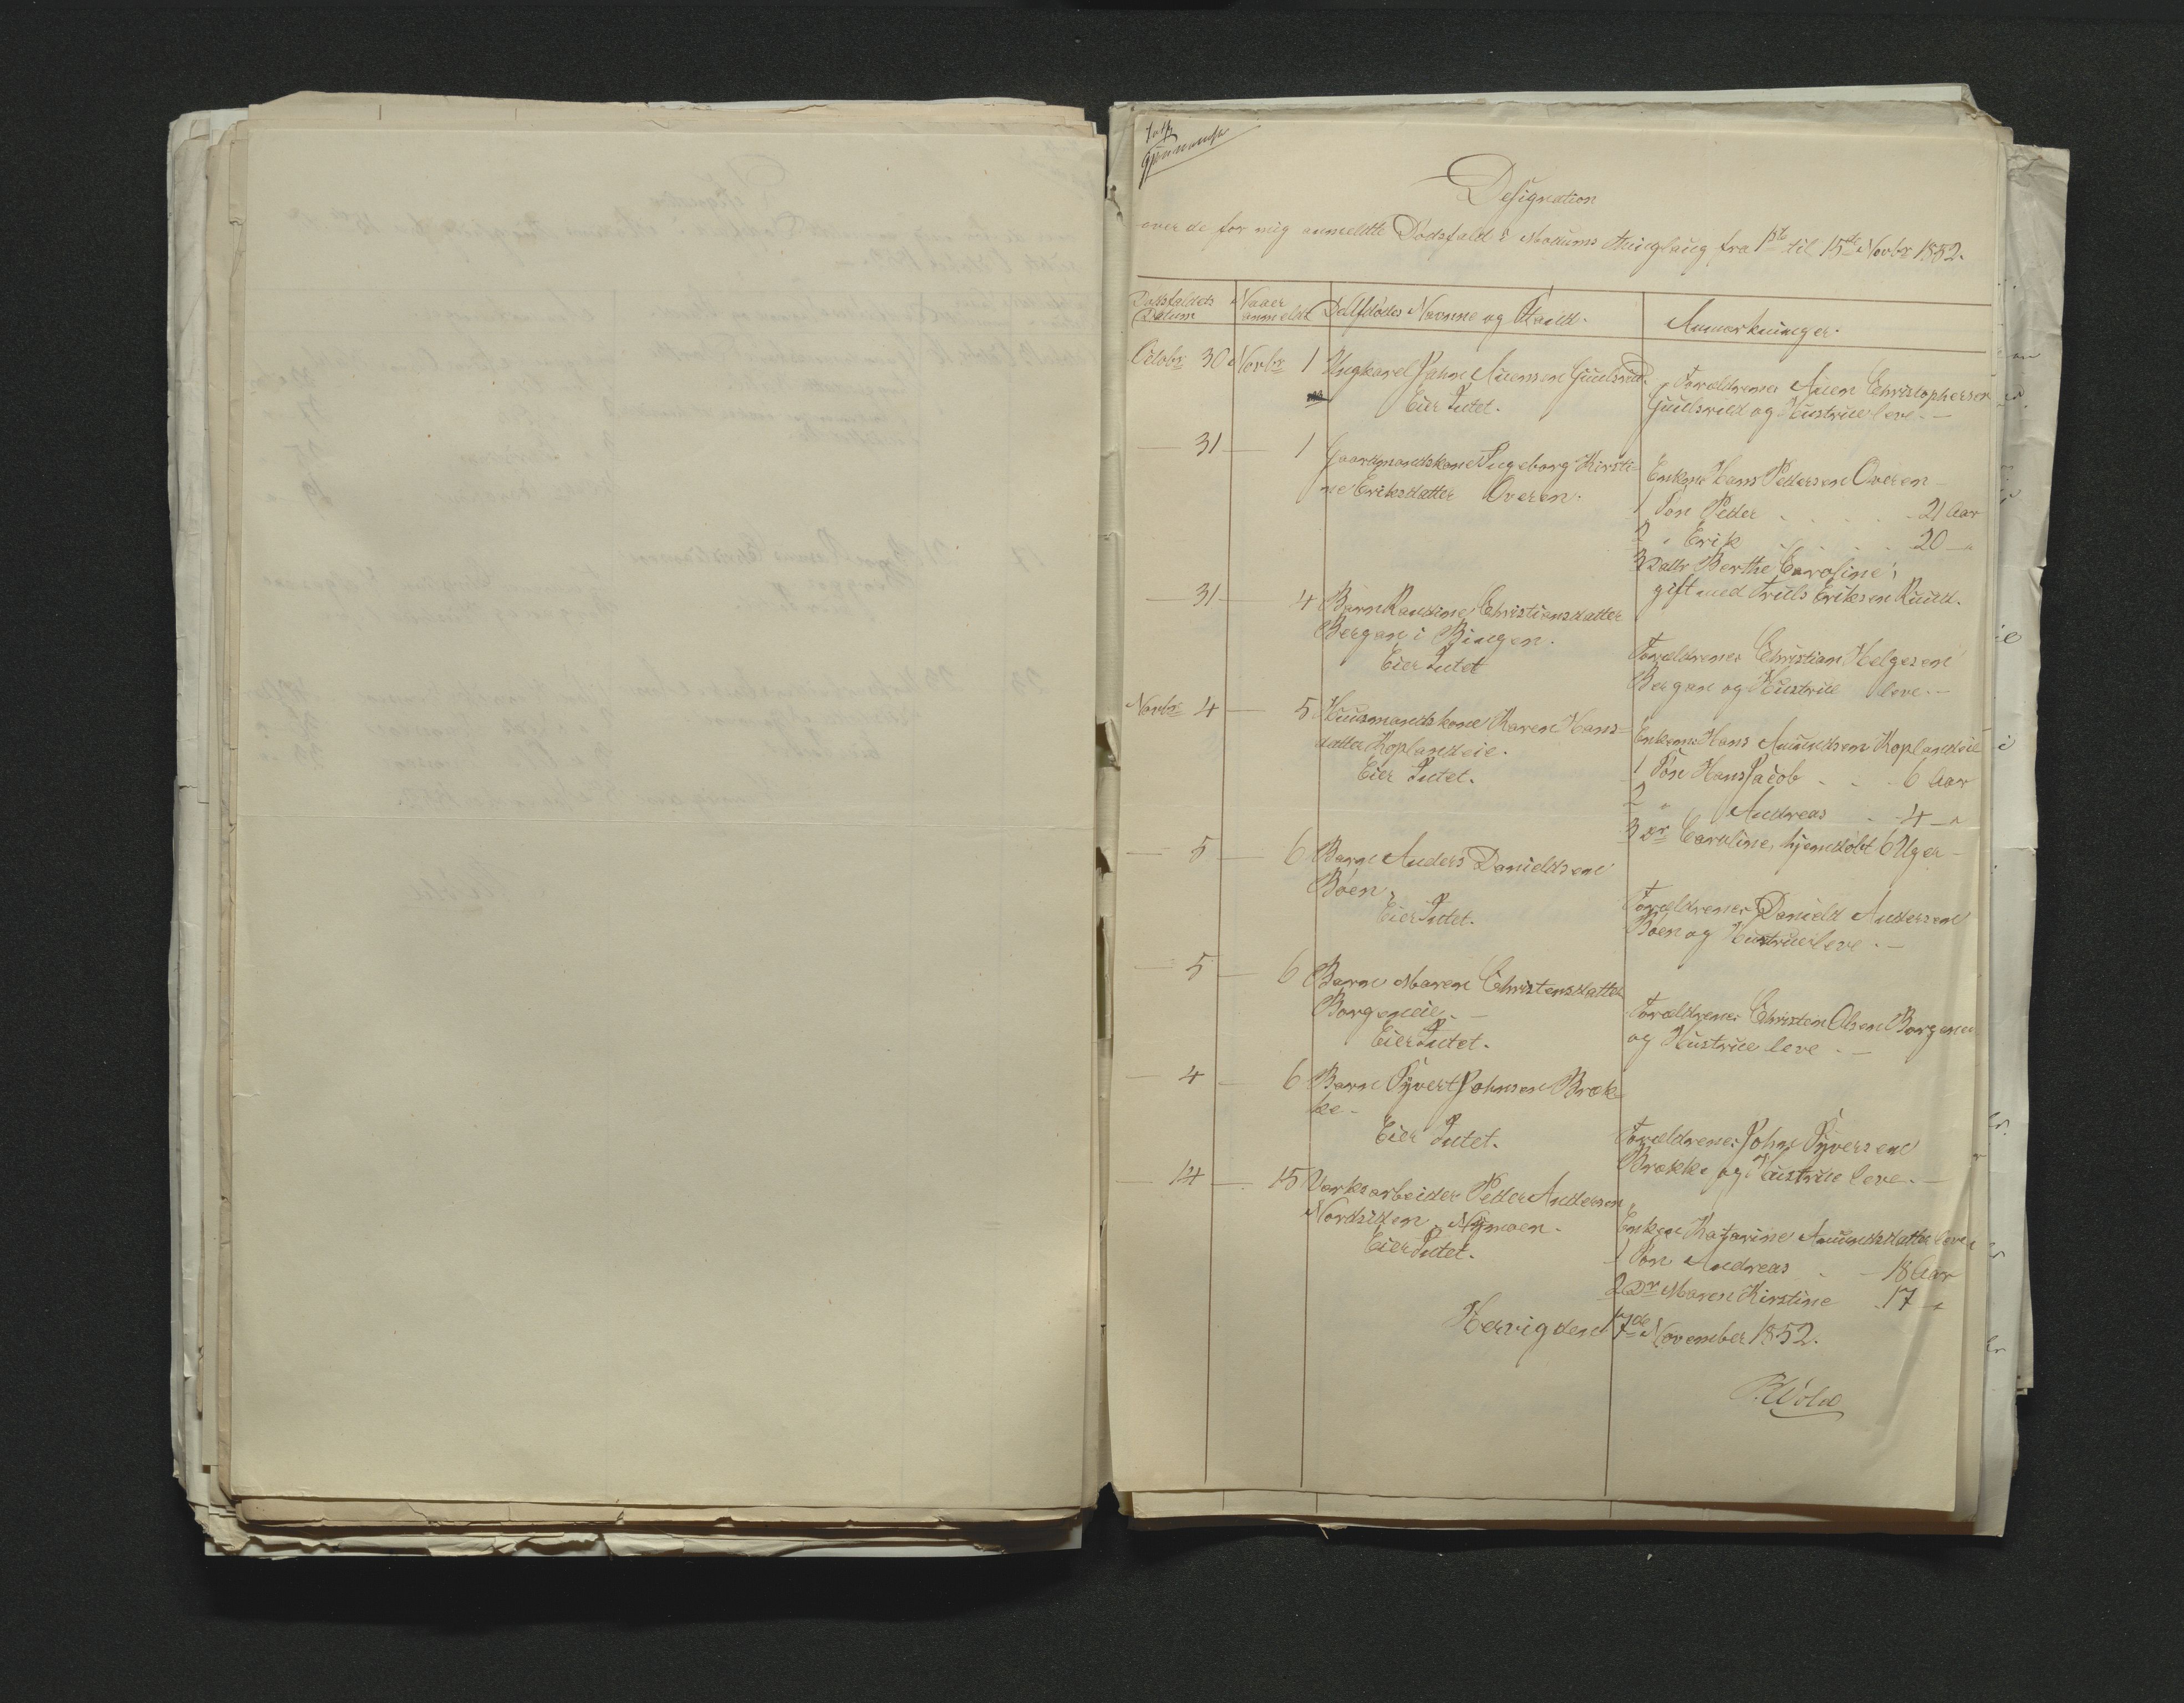 Designation
over de for mig anmeldte Dødsfald i Modums Thinglaug fra 1ste til 15de Novbr 1852.
Dødsfaldets Datum
Naar anmeldt
Den Afdødes Navne og Stand.
Anmærkninger.
Octobr 30 Novbr 1 Ungkarl John Auensen Guulsrud.
Eier Intet.
Forældrene Auen Christophersen
Guulsrud og Hustrue leve. —
— 31 — 1 Gaardmandskone Ingeborg Kirsti-
ne Eriksdatter Overen.
Enkem Hans Pedersen Overen —
1 Søn Peder . . . . 21 Aar
2 " Erik . . . . 20 — "
3 Dattr Berthe Caroline,
gift med Truls Eriksen Ruud.
— 31 — 4 Barn Randine Christiansdatter
Bergan i Bingen.
Eier Intet
Forældrene Christian Helgesen
Bergan og Hustrue leve. —
Novbr 4 — 5 Huusmandskone Karen Hans-
datter Koplandeie.
Eier Intet.
Enkem Hans Amundsen Koplandeie
1 Søn Hans Jacob . . 6 Aar
2 " Andreas . . 4 — "
3 Dr Caroline, hjemdøbt 6 Uger —
— 5 — 6 Barn Anders Danieldsen
Bøen,
Eier Intet.
Forældrene Danield Andersen
Bøen og Hustrue leve. —
— 5 — 6 Barn Maren Christensdatter
Borgeneie. —
Eier Intet.
Forældrene Christen Olsen Borgeneie
og Hustrue leve. —
— 4 — 6 Barn Syvert Johnsen Bræk-
ke —
Eier Intet.
Forældrene John Syversen
Brække og Hustrue leve. —
— 14 — 15 Værksarbeider Peder Andersen
Nordsiden, Nymoen.
Eier Intet.
Enken Katarine Amundsdatter leve
1 Søn Andreas . — 18 Aar
2 Dr Maren Kirstine . 17 — "
Hervig den 17de November 1852.